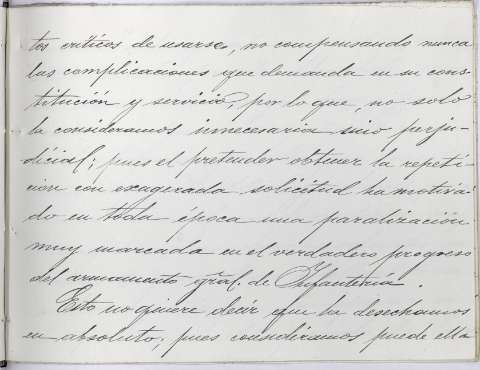 tos críticos de usarse, no compensando nunca
las complicaciones que demanda en su cons-
titución y servicio, por lo que, no solo
la consideramos innecesaria sino perju-
dicial; pues el pretender obtener la repeti-
cion con exagerada solicitud ha motiva-
do en toda época una paralización
muy marcada en el verdadero progreso
del armamento gral. de Infantería.
Esto no quiere decir que la desechamos
en absoluto; pues consideramos puede ella